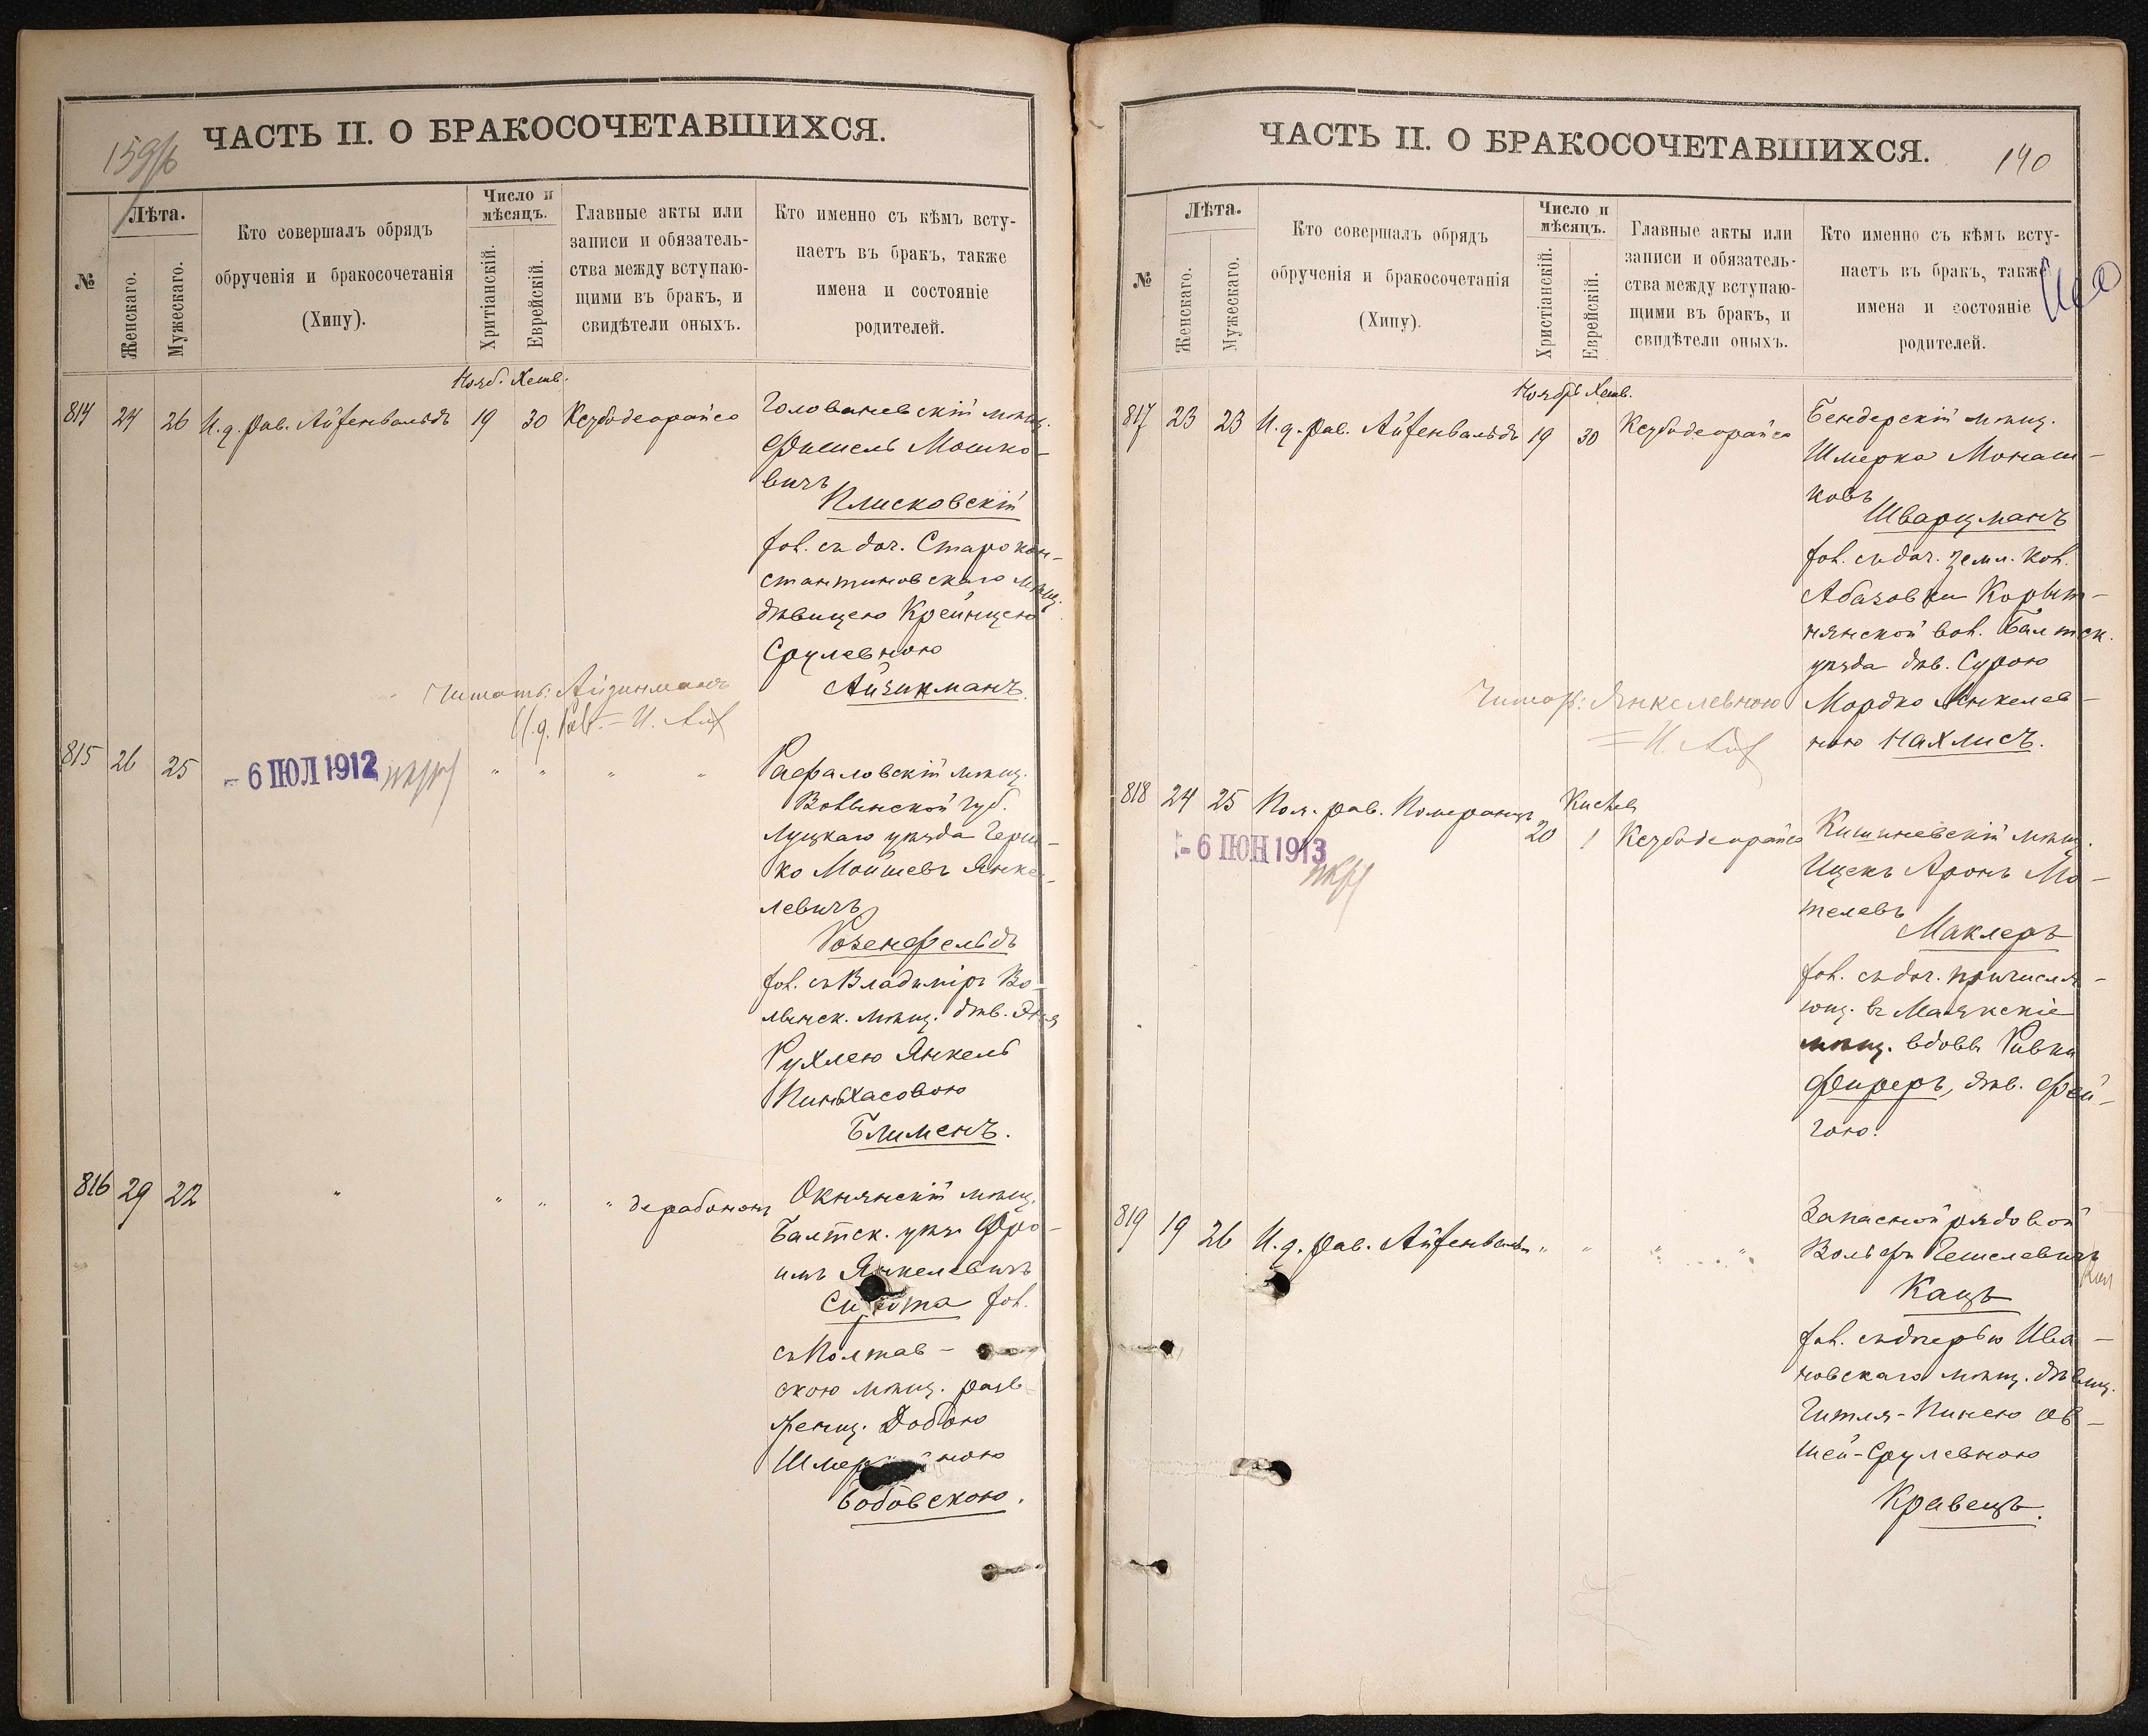 ЧАСТЬ II. О БРАКОСОЧЕТАВШИХСЯ.
№
Лѣта.
Женскаго.
Мужескаго.
Кто совершалъ обрядъ
обрученія и бракосочетанія
(Хипу).
Число и
мѣсяцъ.
Хритіанскій.
Еврейскій.
Главные акты или
записи и обязатель-
ства между вступаю-
щими въ бракъ, и
свидѣтели оныхъ.
Кто именно съ кѣмъ всту-
паетъ въ бракъ, также
имена и состояніе
родителей.
Нояб. Хешв.
814 24 26 И. д. Рав. Айзенвальдъ 19 30 Кезубодеорайсо
Голованевскій мѣщ.
Фишель Мошко-
вичъ
Плисковскій
хол. съ доч. Старокон-
стантиновскаго мѣщ.
дѣвицею Крейнцею
Срулевною
Айзикманъ.
Читать: Айзинманъ
И. д. Рав.
815 26 25 - 6 ІЮЛ 1912 " " " "
Рафаловскій мѣщ.
Волынской губ.
Луцкаго уѣзда Герш-
ко Мойшевъ Янке-
левичъ
Розенфельдъ
хол. съ Владиміръ Во-
лынск. мѣщ. дѣв.
Рухлею Янкель
Пинхасовою
Блименъ.
816 29 22 " " " " дерабононъ
Окнянскій мѣщ.
Балтск. уѣз. Фро-
имъ Янкелевичъ
Сирота хол.
съ Полтав-
скою мѣщ. разв
женщ. Добою
Бобовскою.
ЧАСТЬ II. О БРАКОСОЧЕТАВШИХСЯ.
140
№
Лѣта.
Женскаго.
Мужескаго.
Кто совершалъ обрядъ
обрученія и бракосочетанія
(Хипу).
Число и
мѣсяцъ.
Христіанскій.
Еврейскій.
Главные акты или
записи и обязатель-
ства между вступаю-
щими въ бракъ, и
свидѣтели оныхъ.
Кто именно съ кѣмъ всту-
паетъ въ бракъ, также
имена и состояніе
родителей.
Ноябрь Хешв.
817 23 23 И. д. Рав. Айзенвальдъ 19 30 Кезубодеорайсо
Бендерскій мѣщ.
Шмерко Монаш-
ковъ
Шварцманъ
хол. съ доч. земл. кол.
Абазовки Корыт-
нянской вол. Балтск.
уѣзда дѣв. Сурою
Мордко Янкелев-
ною Нахлисъ.
Читать: Янкелевною
818 24 25 Пом. рав. Померанцъ Кислев 20 1 Кезубодеорайсо
- 6 ІЮН 1913
Кишиневскій мѣщ.
Ицекъ Аронъ Мо-
телевъ
Маклеръ
хол. съ доч. причисля-
ющ. въ Маякскіе
мѣщ. вдовы Ривки
Фиреръ, дѣв. Фей-
гою.
819 19 26 И. д. Рав. Айзенвальдъ " " " "
Запасной рядовой
Вольфъ Гешелевичъ
Кацъ
хол. съ дочерью Ива-
новскаго мѣщ. дѣвиц.
Гитля-Пинею Ов-
шей-Срулевною
Кравецъ.